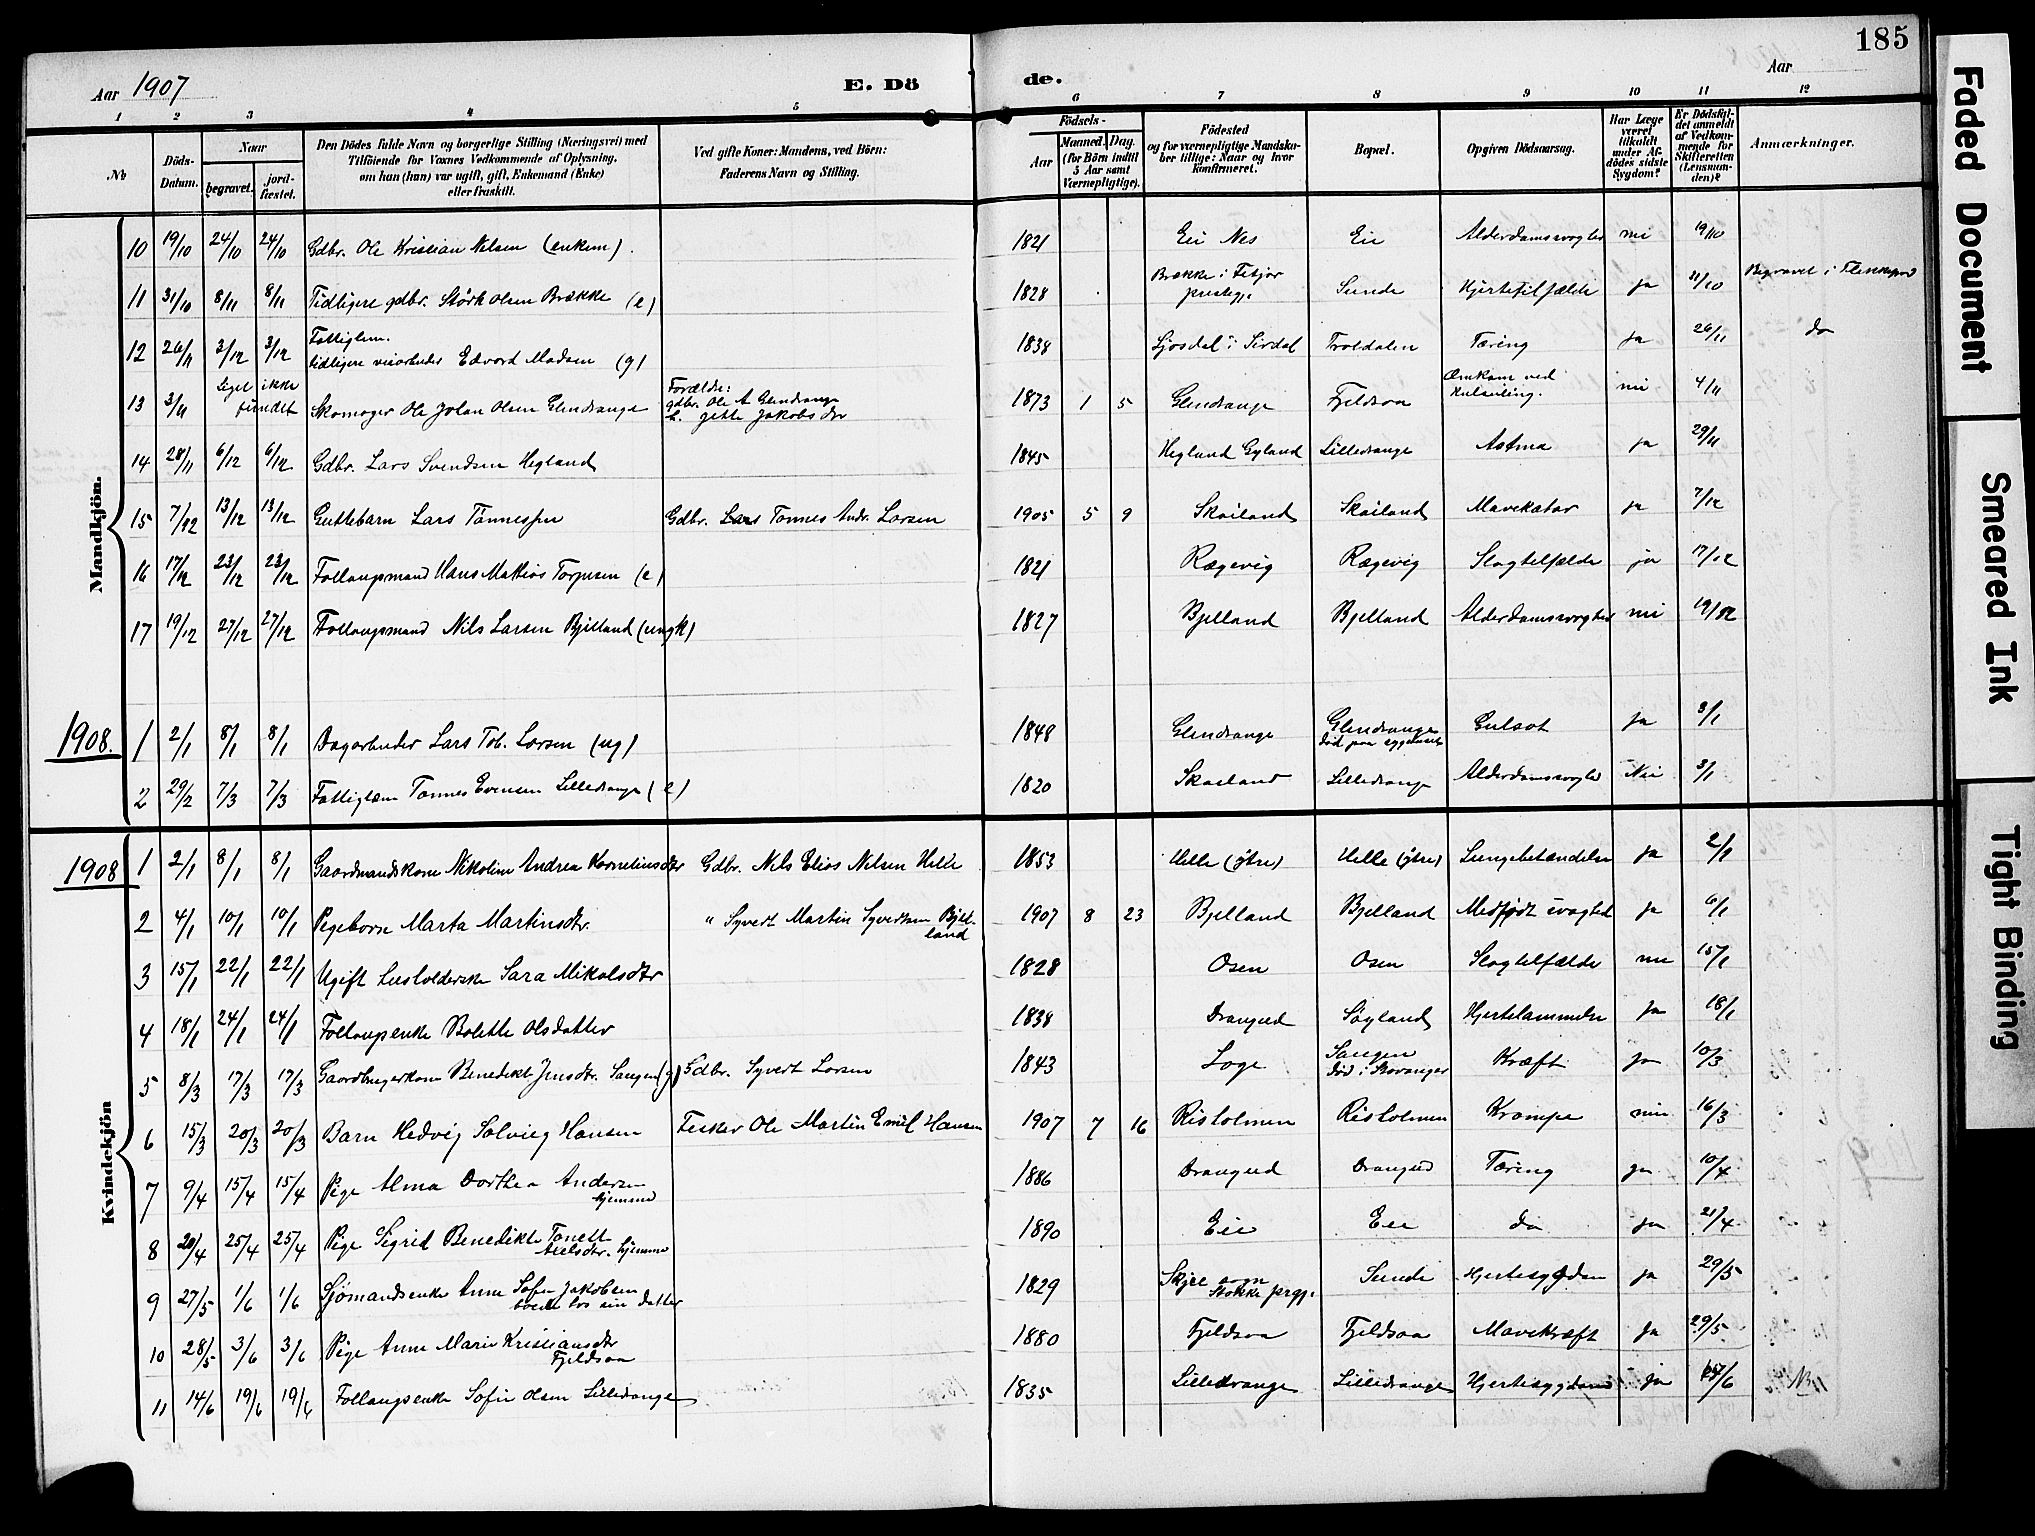 185
Aar 1907
E. Dö
de.
Aar
1 2 3 4 5 6 7 8 9 10 11 12
No
Döds-
Datum.
Naar
begravet.
jord-
fæstet.
Den Dödes fulde Navn og borgerlige Stilling (Næringsvei) med
Tilföiende for Voxnes Vedkommende af Oplysning,
om han (hun) var ugift, gift, Enkemand (Enke)
eller fraskilt.
Ved gifte Koner: Mandens, ved Börn:
Faderens Navn og Stilling.
Födsels-
Aar
Maaned. Dag.
(for Börn indtil
5 Aar samt
Værnepligtige).
Födested
og for værnepligtige Mandska-
ber tillige: Naar og hvor
konfirmeret.
Bopæl.
Opgiven Dödsaarsag.
Har Læge
været
tilkaldt
under Af-
dödes sidste
Sygdom?
Er Dödsfal-
det anmeldt
af Vedkom-
mende for
Skifteretten
(Lensman-
den)?
Anmærkninger.
Mandkjön.
10 19/10 24/10 24/10 Gdbr. Ole Kristian Nilsen (enkem). 1821 Eie Nes Eie Alderdomssvaghed nei 19/10
11 31/10 8/11 8/11 Tidligere gdbr. Störk Olsen Brække (e) 1828 Brække i Fetjor
prestegj. Sunde Hjertetilfælde ja 31/10 Begravet i Flekkefjord
12 26/11 3/12 3/12 Fattiglem.
tidligere veiarbeider Edvard Madsen (g) 1838 Ljosdal i Sirdal Troldalen Tæring ja 26/11 do
13 3/11 Liget ikke
fundet Skomager Ole Johan Olsen Glendrange Forældre:
gdbr. Ole A Glendrange
h. Jakobsdtr 1873 1 5 Glendrange Fjeldsaa Omkom ved
Kulseiling. nei 4/11
14 28/11 6/12 6/12 Gdbr. Lars Svendsen Hegland 1845 Hegland Gyland Lilledrange Astma ja 29/11
15 7/12 13/12 13/12 Guttebarn Lars Tönnessen Gdbr. Lars Tönnes Andr. Larsen 1905 5 9 Skailand Skailand Mavekatar ja 7/12
16 17/12 23/12 23/12 Follaugsmand Hans Mathias Torjusen (e) 1821 Rægevig Rægevig Slagtilfælde ja 17/12
17 19/12 27/12 27/12 Follaugsmand Nils Larsen Bjelland (ungk) 1827 Bjelland Bjelland Alderdomssvaghed nei 19/12
1908. 1 2/1 8/1 8/1 Dagarbeider Lars Tob. Larsen (ug) 1848 Glendrange Glendrange
död paa Gulsot ja 3/1
2 29/2 7/3 7/3 Fattiglem Tönnes Evensen Lilledrange (e) 1820 Skailand Lilledrange Alderdomssvaghed Nei 3/1
Kvindekjön
1908 1 2/1 8/1 8/1 Gaardmandskone Nikoline Andrea Korneliusdtr Gdbr. Nils Elias Nilsen Helle 1853 Helle (ytre) Helle (ytre) Lungebetændelse ja 2/1
2 4/1 10/1 10/1 Pigebarn Marta Martinsdtr. " Syvert Martin Syvertsen Bjel-
land 1907 8 23 Bjelland Bjelland Medfödt svaghed ja 6/1
3 15/1 22/1 22/1 Ugift Sara Mikalsdtr 1828 Osen Osen Slagtilfælde nei 15/1
4 18/1 24/1 24/1 Follaugsenke Bolette Olsdatter 1838 Drangeid Söyland Hjertelammelse ja 18/1
5 8/3 17/3 17/3 Gaardbrugerkone Benedikte Jensdtr. Sangen (g) Gdbr. Syvert Larsen 1843 Loge Sangen
död i Stavanger Kræft ja 10/3
6 15/3 20/3 20/3 Barn Hedvig Solveig Hansen Fisker Ole Martin Emil Hansen 1907 7 16 Risholmen Risholmen Krampe nei 16/3
7 9/4 15/4 15/4 Pige Alma Dorthea Andersen
hjemme 1886 Drangeid Drangeid Tæring ja 10/4
8 20/4 25/4 25/4 Pige Sigrid Benedikte Tonette
Axelsdtr. hjemme 1890 Eie Eie do ja 21/4
9 27/5 1/6 1/6 Sjömandsenke Anne Sofie Jakobsen
boede hos sin datter 1829 Skjee sogn
Stokke prgj. Sunde Hjertesygdom ja 29/5
10 28/5 3/6 3/6 Pige Anne Marie Kristiansdtr
Fjeldsaa 1880 Fjeldsaa Fjeldsaa Mavekræft ja 29/5
11 14/6 19/6 19/6 Follaugsenke Sofie Olsen Lilledrange 1835 Lilledrange Lilledrange Hjertesygdom ja 15/6
Faded Document
Smeared Ink
Tight Binding